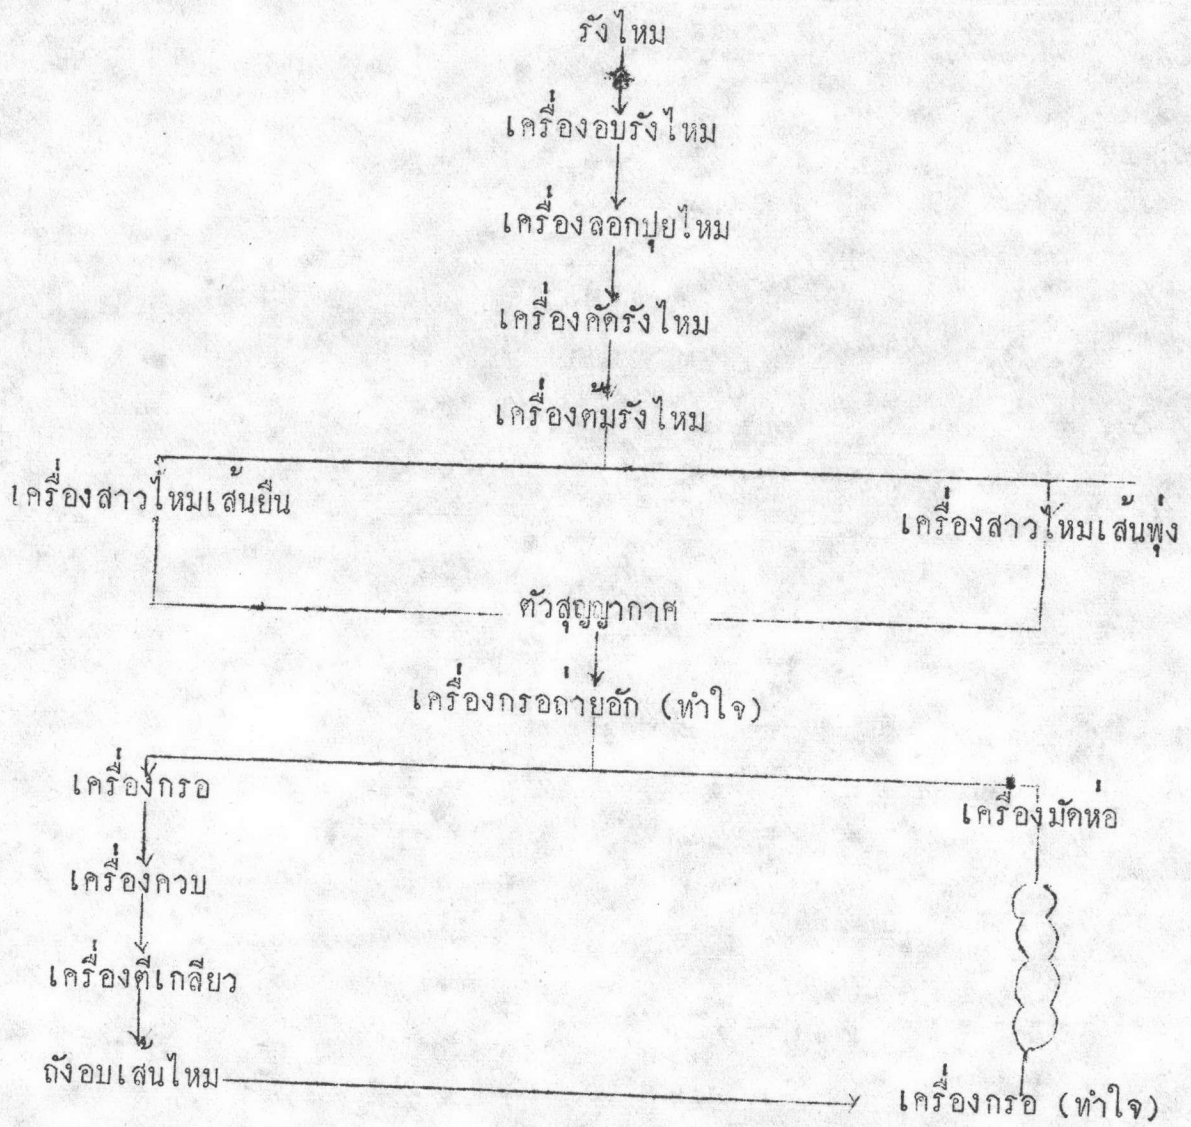 รังไหม
เครื่องอบรังไหม
เครื่องลอกปุยไหม
เครื่องคัดรังไหม
เครื่องต้มรังไหม
เครื่องสาวไหมเส้นยืน
เครื่องสาวไหมเส้นพุ่ง
ตัวสุญญากาศ
เครื่องกรอถ่ายอัก (ทำใจ)
เครื่องกรอ
เครื่องมัดห่อ
เครื่องควบ
เครื่องตีเกลียว
ถังอบเส้นไหม
เครื่องกรอ (ทำใจ)